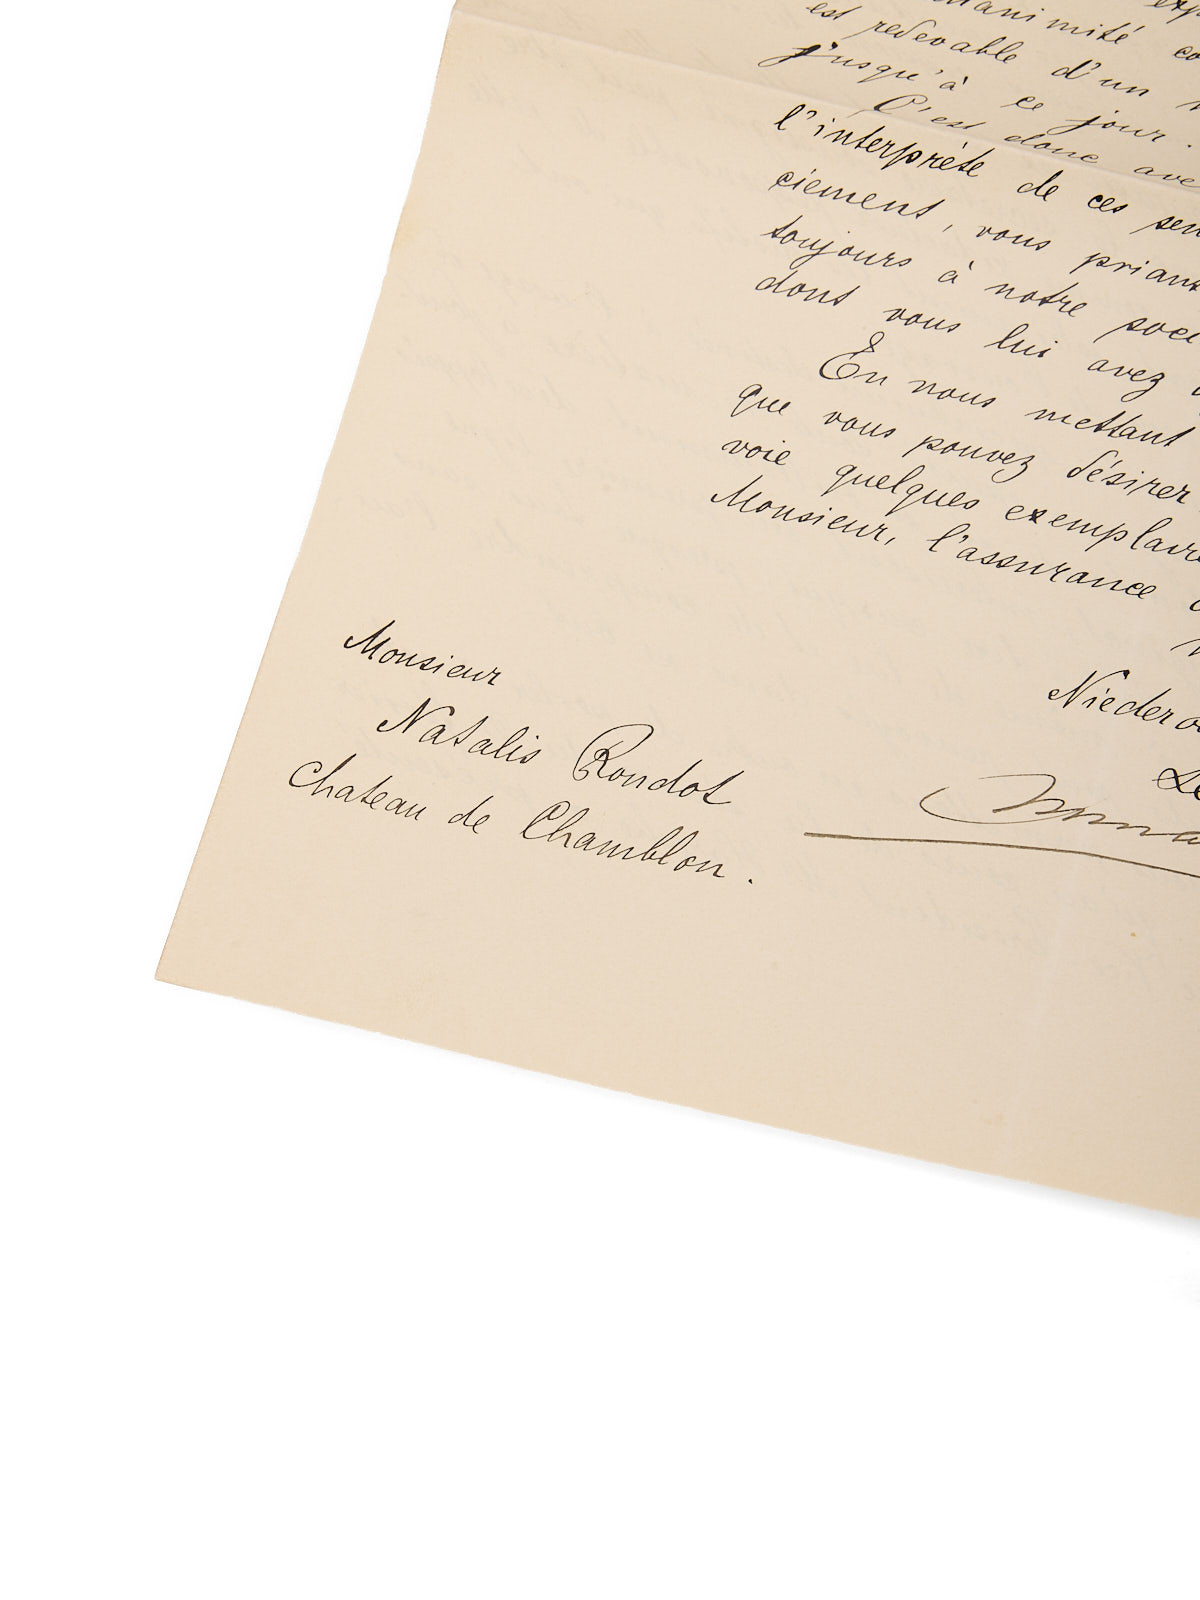 unanimité
est redevable d'un
jusqu'à ce jour.
C'est donc
l'interprète de ces
ciement, vous priant
toujours à notre
dont vous lui avez
En nous mettant
que vous pouvez désirer
voie quelques exemplaire
Monsieur, l'assurance
Niedero
Le
Monsieur
Natalis Rondot
Chateau de Chamblon.